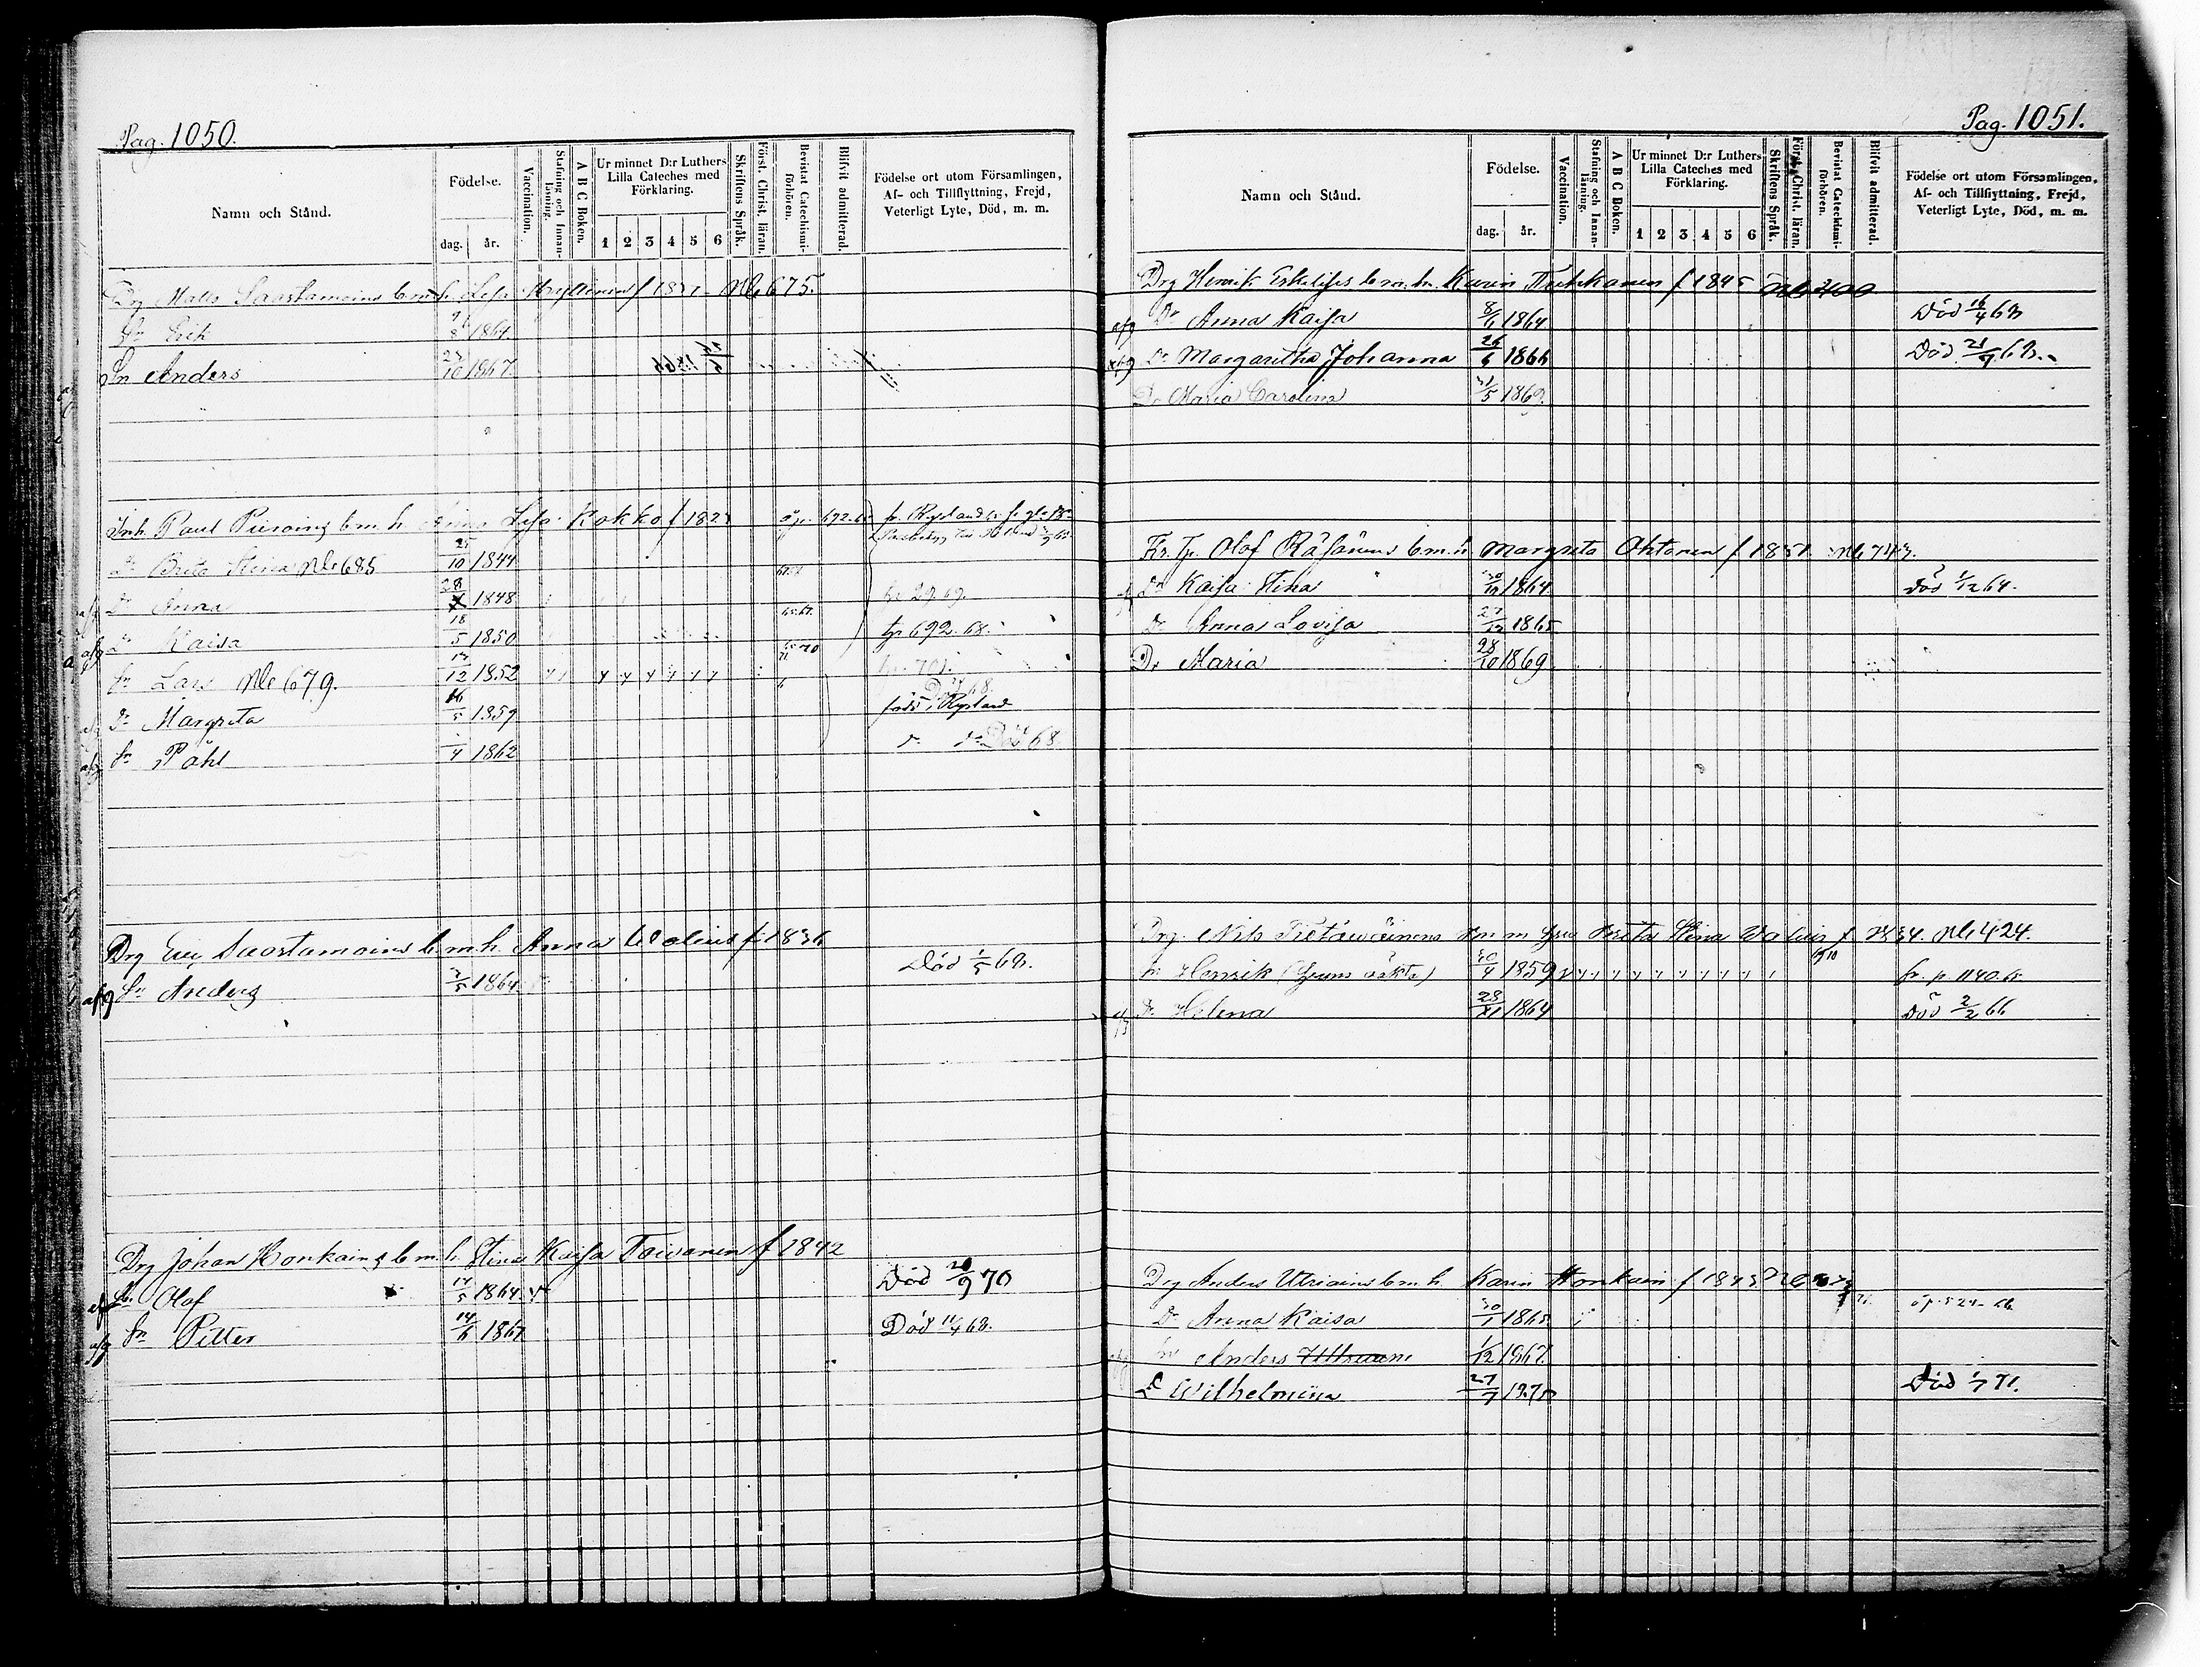 Pag. 1050.
Namn och Stånd.
Födelse.
dag. år.
Vaccination.
Stafning och Innanläsning.
A B C Boken.
Ur minnet D:r Luthers Lilla Cateches med Förklaring.
1 2 3 4 5 6
Skriftens Språk.
Först. Christ. läran.
Bevistat Catechismiförhören.
Blifvit admitterad.
Födelse ort utom Församlingen, Af- och Tillflyttning, Frejd, Veterligt Lyte, Död, m. m.
Drg Matts Saastamoins b m h. Lisa f 18 No 675.
Sn Erik 1864.
Sn Anders 10 1867.
Inh. Paul Piiroing b m h. Anna Lisa Kokko f 182
Dr Brita Stina No 685 25/10 1844
afg Dr Anna 28 1848
afg Dr Kaisa 18/5 1850 fr 692. 68.
Sn Lars No 679. 12 1852
Dr Margreta 16/5 1859 född i Ryssland
afg Sn Påhl 4 1862 Död 68.
Drg Eric Saastamoins b. m. h. Anna Walius f. 1836
afg Sn Anders 5 1864 Död 1/5 68.
Drg Johan Honkaing b m. h. Stina Kaisa Toivanen f 1842
afg Sn Olof 5 1864 Död 20/9 70
afg Sn Petter 14/6 1867 Död 11/4 68.
Pag. 1051.
Namn och Stånd.
Födelse.
dag. år.
Vaccination.
Stafning och Innanläsning.
A B C Boken.
Ur minnet D:r Luthers Lilla Cateches med Förklaring.
1 2 3 4 5 6
Skriftens Språk.
Först. Christ. läran.
Bevistat Catechismiförhören.
Blifvit admitterad.
Födelse ort utom Församlingen, Af- och Tillflyttning, Frejd, Veterligt Lyte, Död, m. m.
Drg Henrik Eskelises b. m. h. Karin f 1845 No 400
afg Dr Anna Kaisa 8/6 1864 Död 16/4 68
afg Dr Margaretha Johanna 26/6 1866 Död 21 68.
Dr Maria Carolina 5 1869.
Kr. Tp. Olof Räsänens b. m. h. Margreta Ohtonen f 1851. No 743.
Dr Kaisa Stina 1864 Död 1/12 64.
Dr Anna Lovisa 27/12 1865
Dr Maria 28/10 1869
Drg. Nils Tietäwäinens Brita Stina Walius f No 424.
Sn Henrik 30/4 1859 fr. p. 1140.
Dr Helena 28 1864 Död 2/2 66
Drg Anders Utriains b m h. Karin Honkain f 1843
Dr Anna Kaisa 30/1 1865
Sn Anders 1/12 1867.
D Wilhelmiina 27/7 1870 Död 1/7 71.